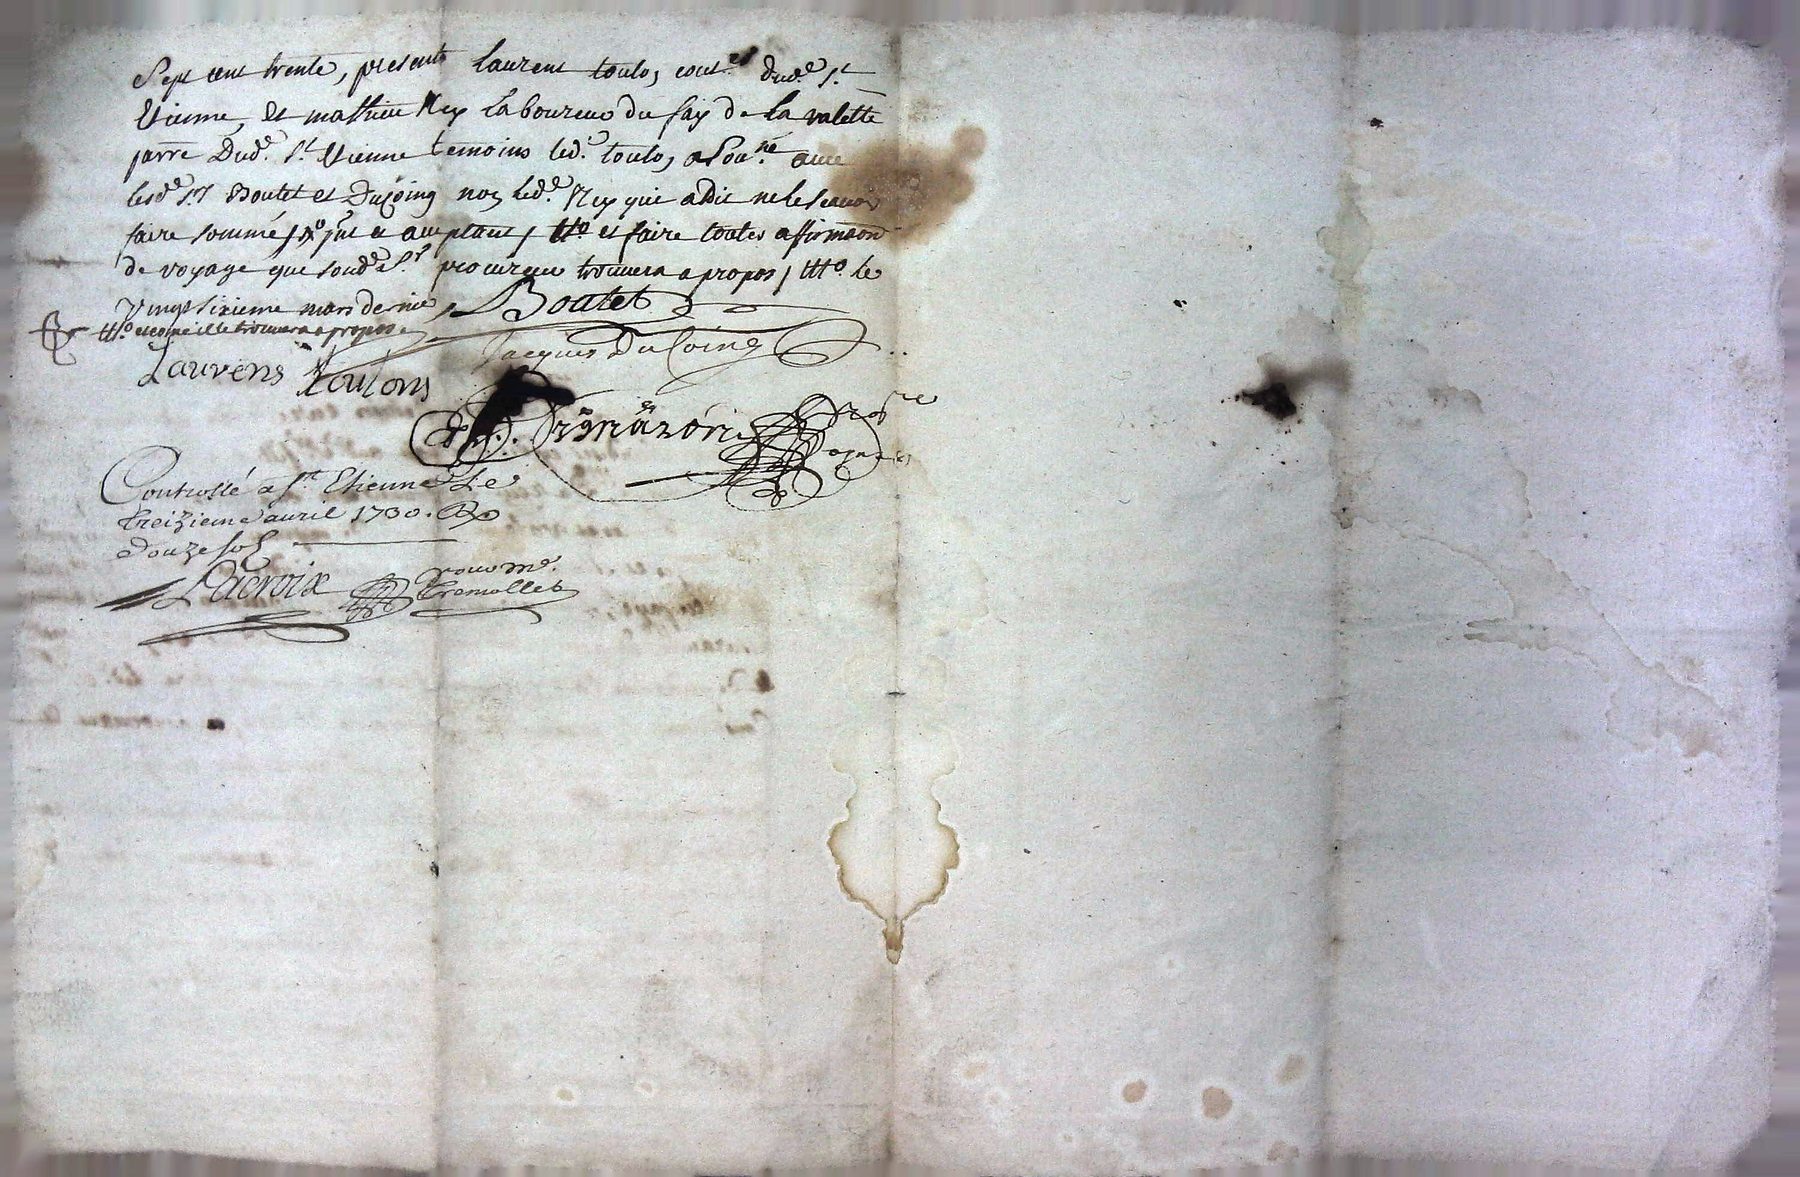 Sept cent trente, presents Laurent toulon, cout.er dud.e S.t
Etienne, et mathieu Rey Laboureur du fay de La valette
parre Dud.e S.t Etienne temoins led.e toulon, a sou.né avec
lesd.e s.rs Boutet et Ducoing non led.e Rey qui a dit ne le scavoir
faire sommé et faire toutes affirmaon
de voyage que sond.e S.r procureur trouvera a propos le
Vingt sixieme mars dernier, Boutet
trouvera a propos
Jacques Du Coing
Laurens Toulons
no.re
Controllé a S.te Etienne Le
treizieme avril 1730. R
douze sols
Lacroix
pour m.e
tremollet